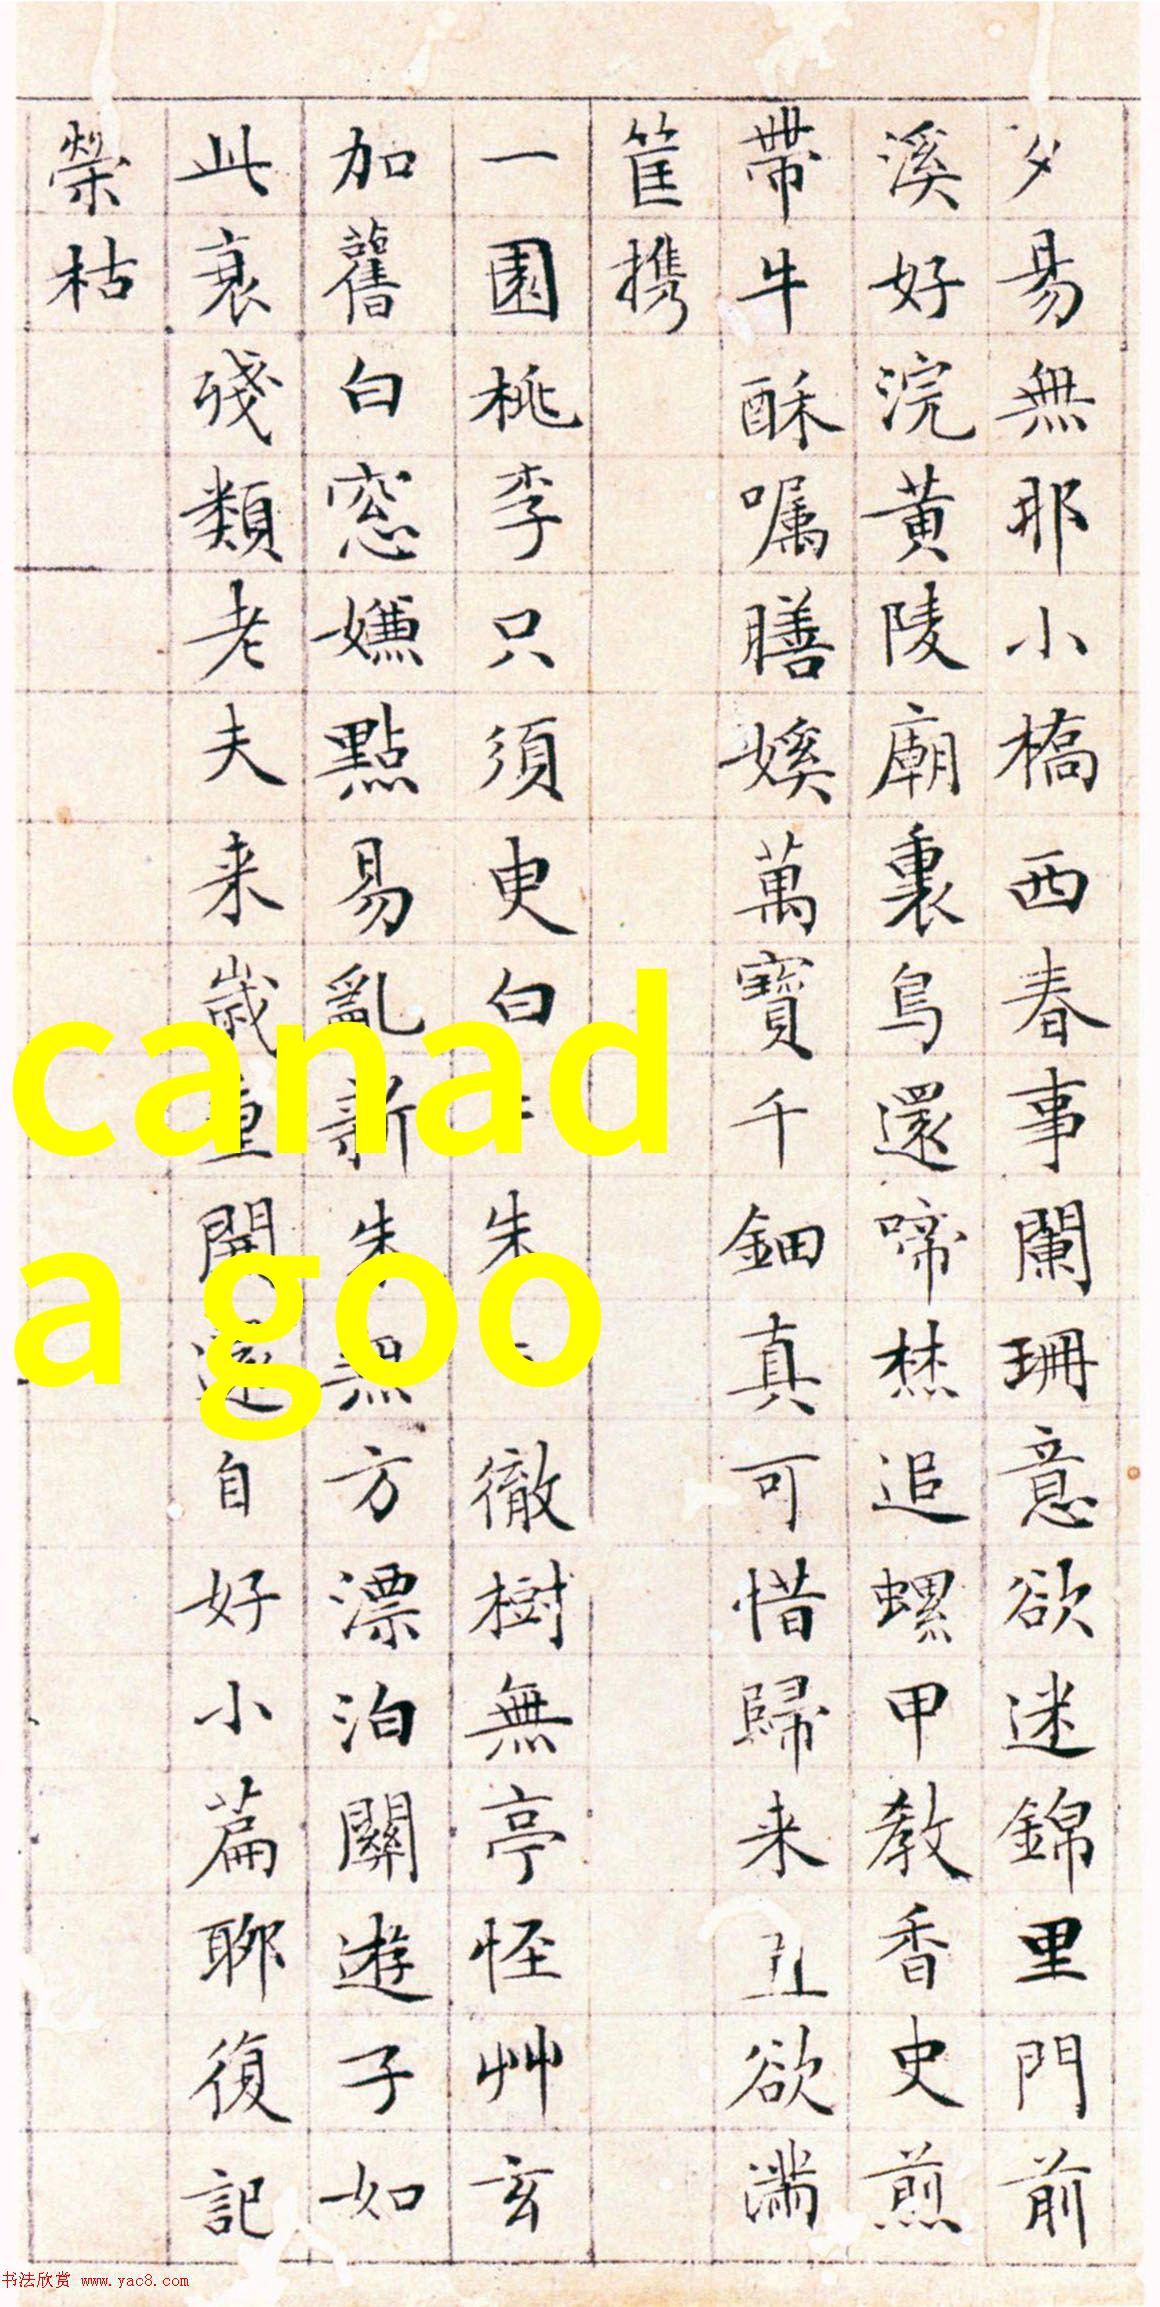 夕易無耶小橋西春事闌珊意欲迷錦里門前
溪好浣黃陵廟裏鳥還啼焚追螺甲教香史煎
帶牛酥嘱膳媛萬寶千鈿真可惜歸来丑欲滿
筐携
一園桃李只須更白朱徹樹無亭怪艸玄
加舊白窓嫌點易亂新朱無方漂泊關遊子如
此衰殘類老夫来歲重開還自好小篇聊復記
榮枯
canad
a goo
书法欣赏 www.yac8.com